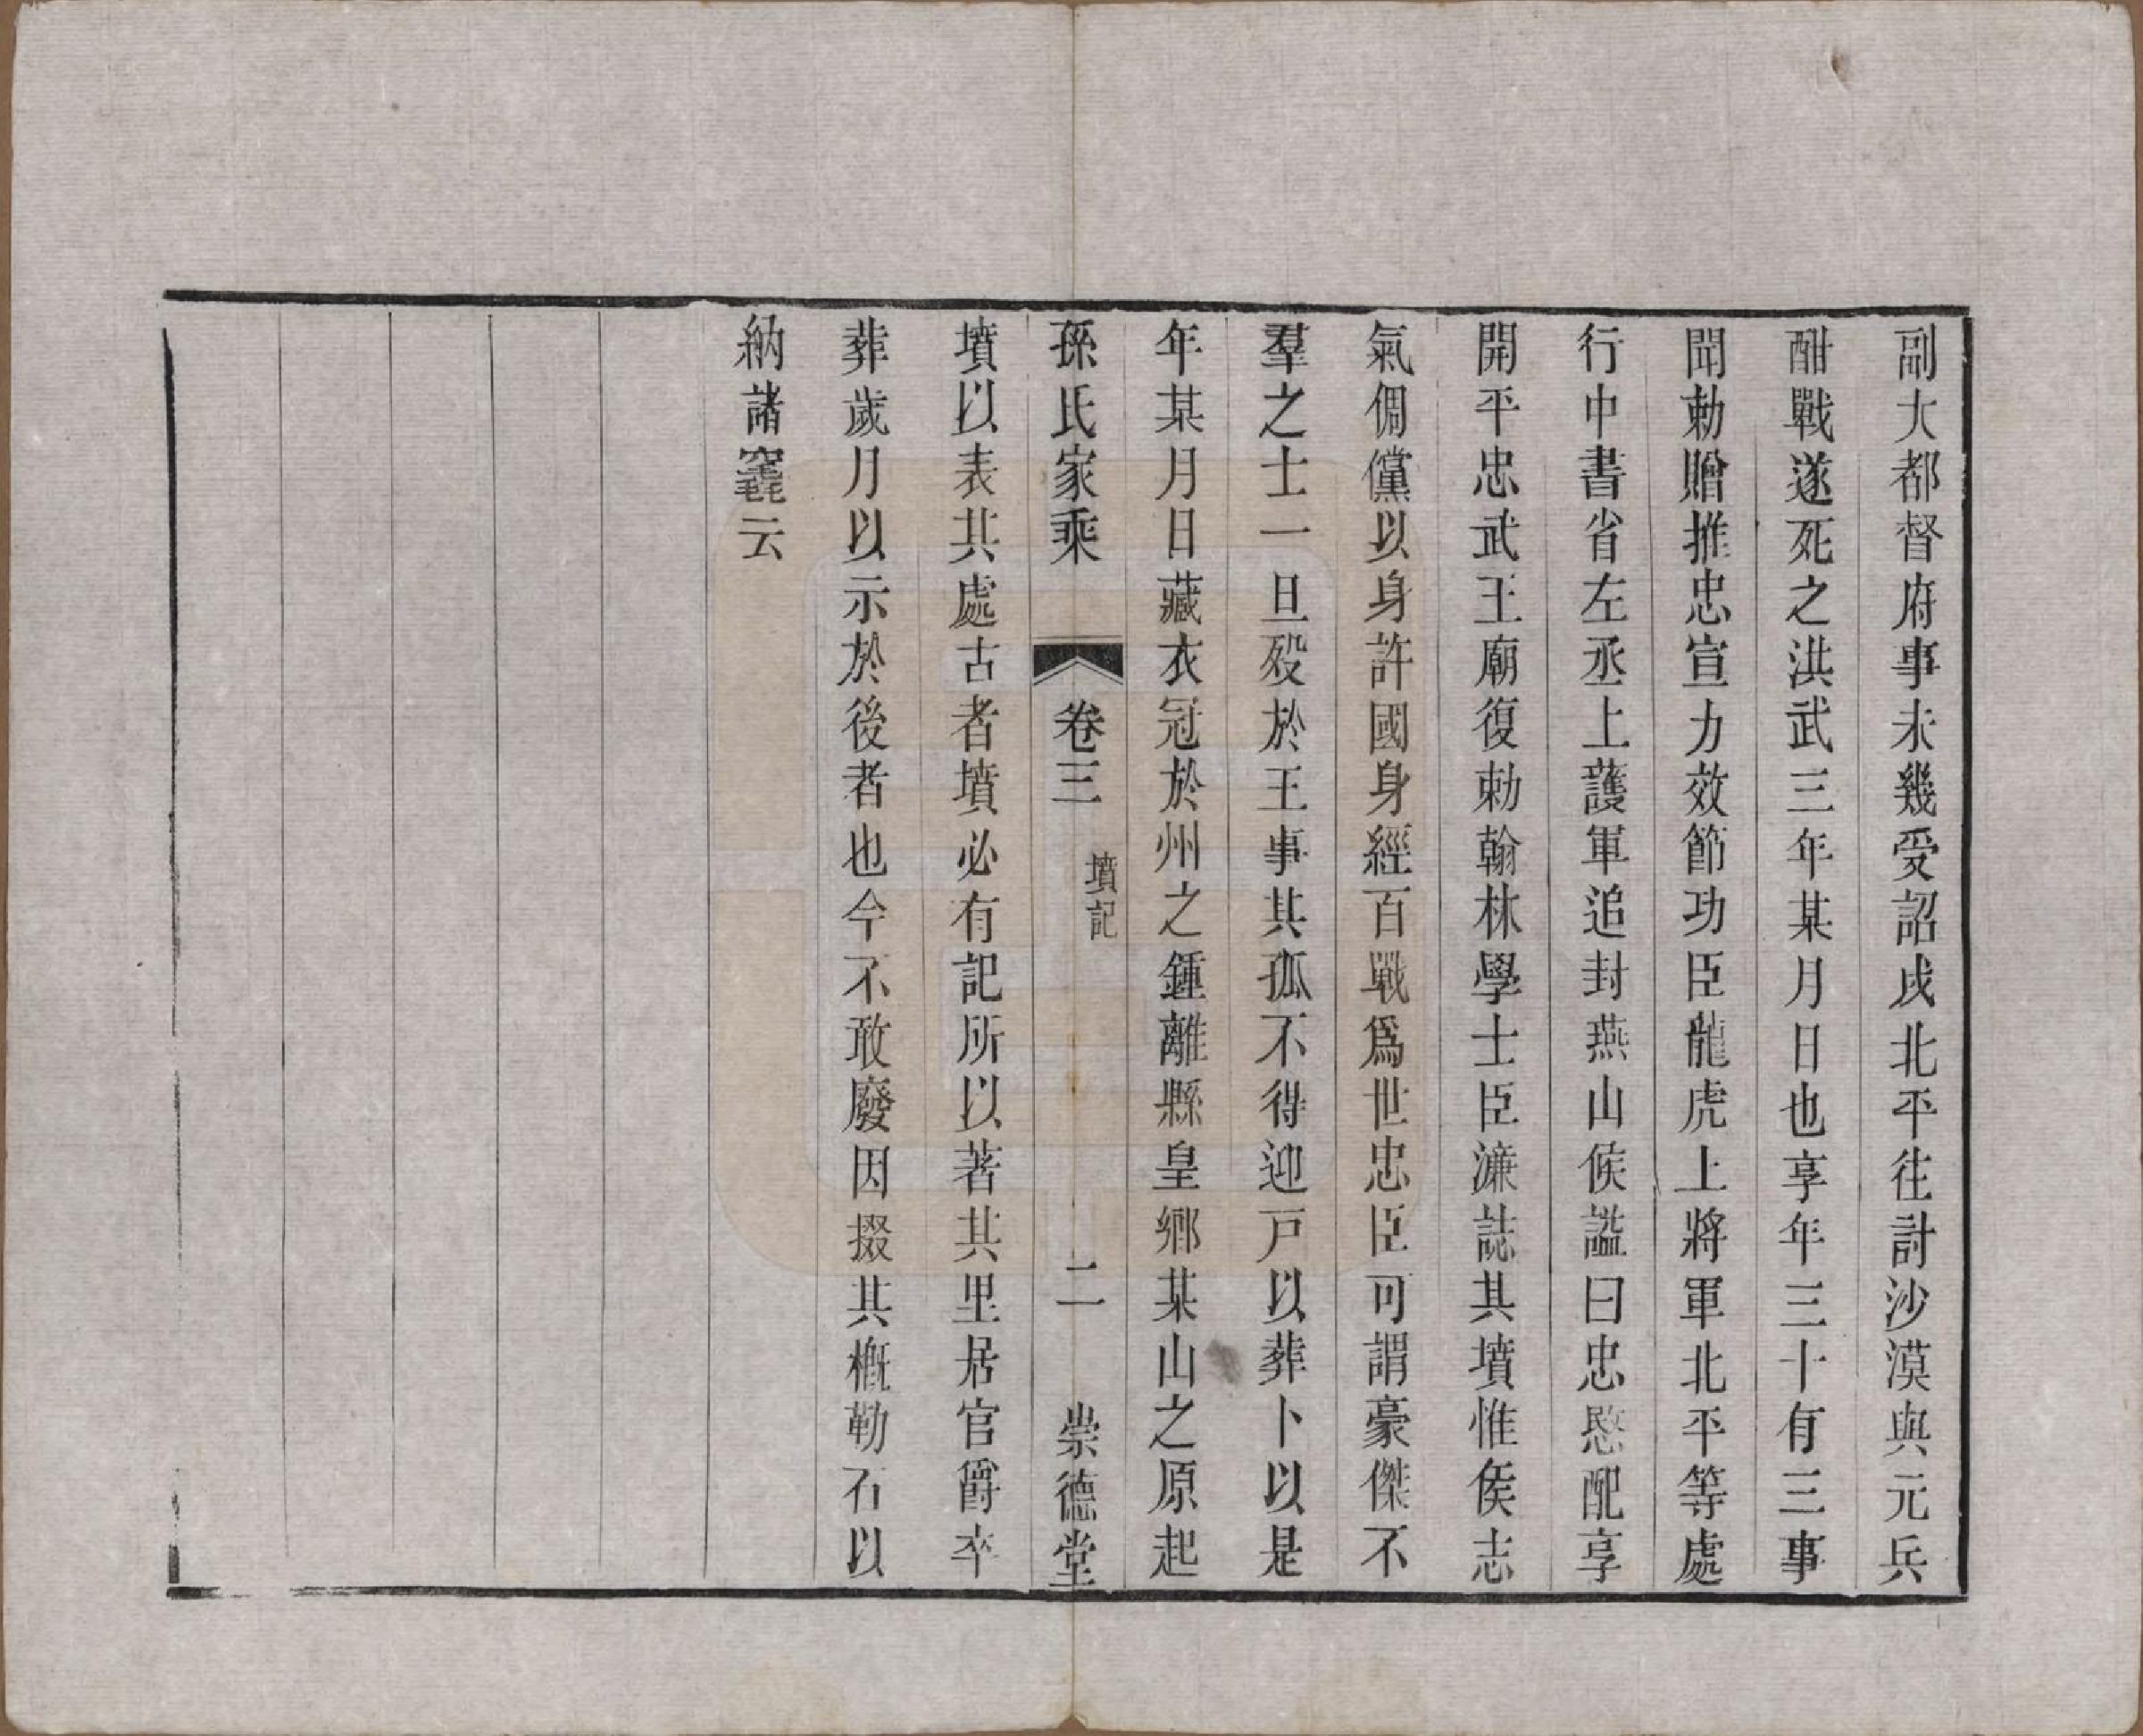 副大都督府事未幾受詔戍北平往討沙漠與元兵
酣戰遂死之洪武三年某月日也享年三十有三事
聞勅贈推忠宣力效節功臣龍虎上將軍北平等處
行中書省左丞上護軍追封燕山侯謚曰忠愍配享
開平忠武王廟復勅翰林學士臣濂誌其墳惟侯志
氣倜儻以身許國身經百戰爲世忠臣可謂豪傑不
羣之士一旦歿於王事其孤不得迎尸以葬卜以是
年某月日藏衣冠於州之鍾離縣皇鄉某山之原起
孫氏家乘 卷三 墳記 二 崇德堂
墳以表其處古者墳必有記所以著其里居官爵卒
葬歲月以示於後者也今不敢廢因掇其槪勒石以
納諸竁云